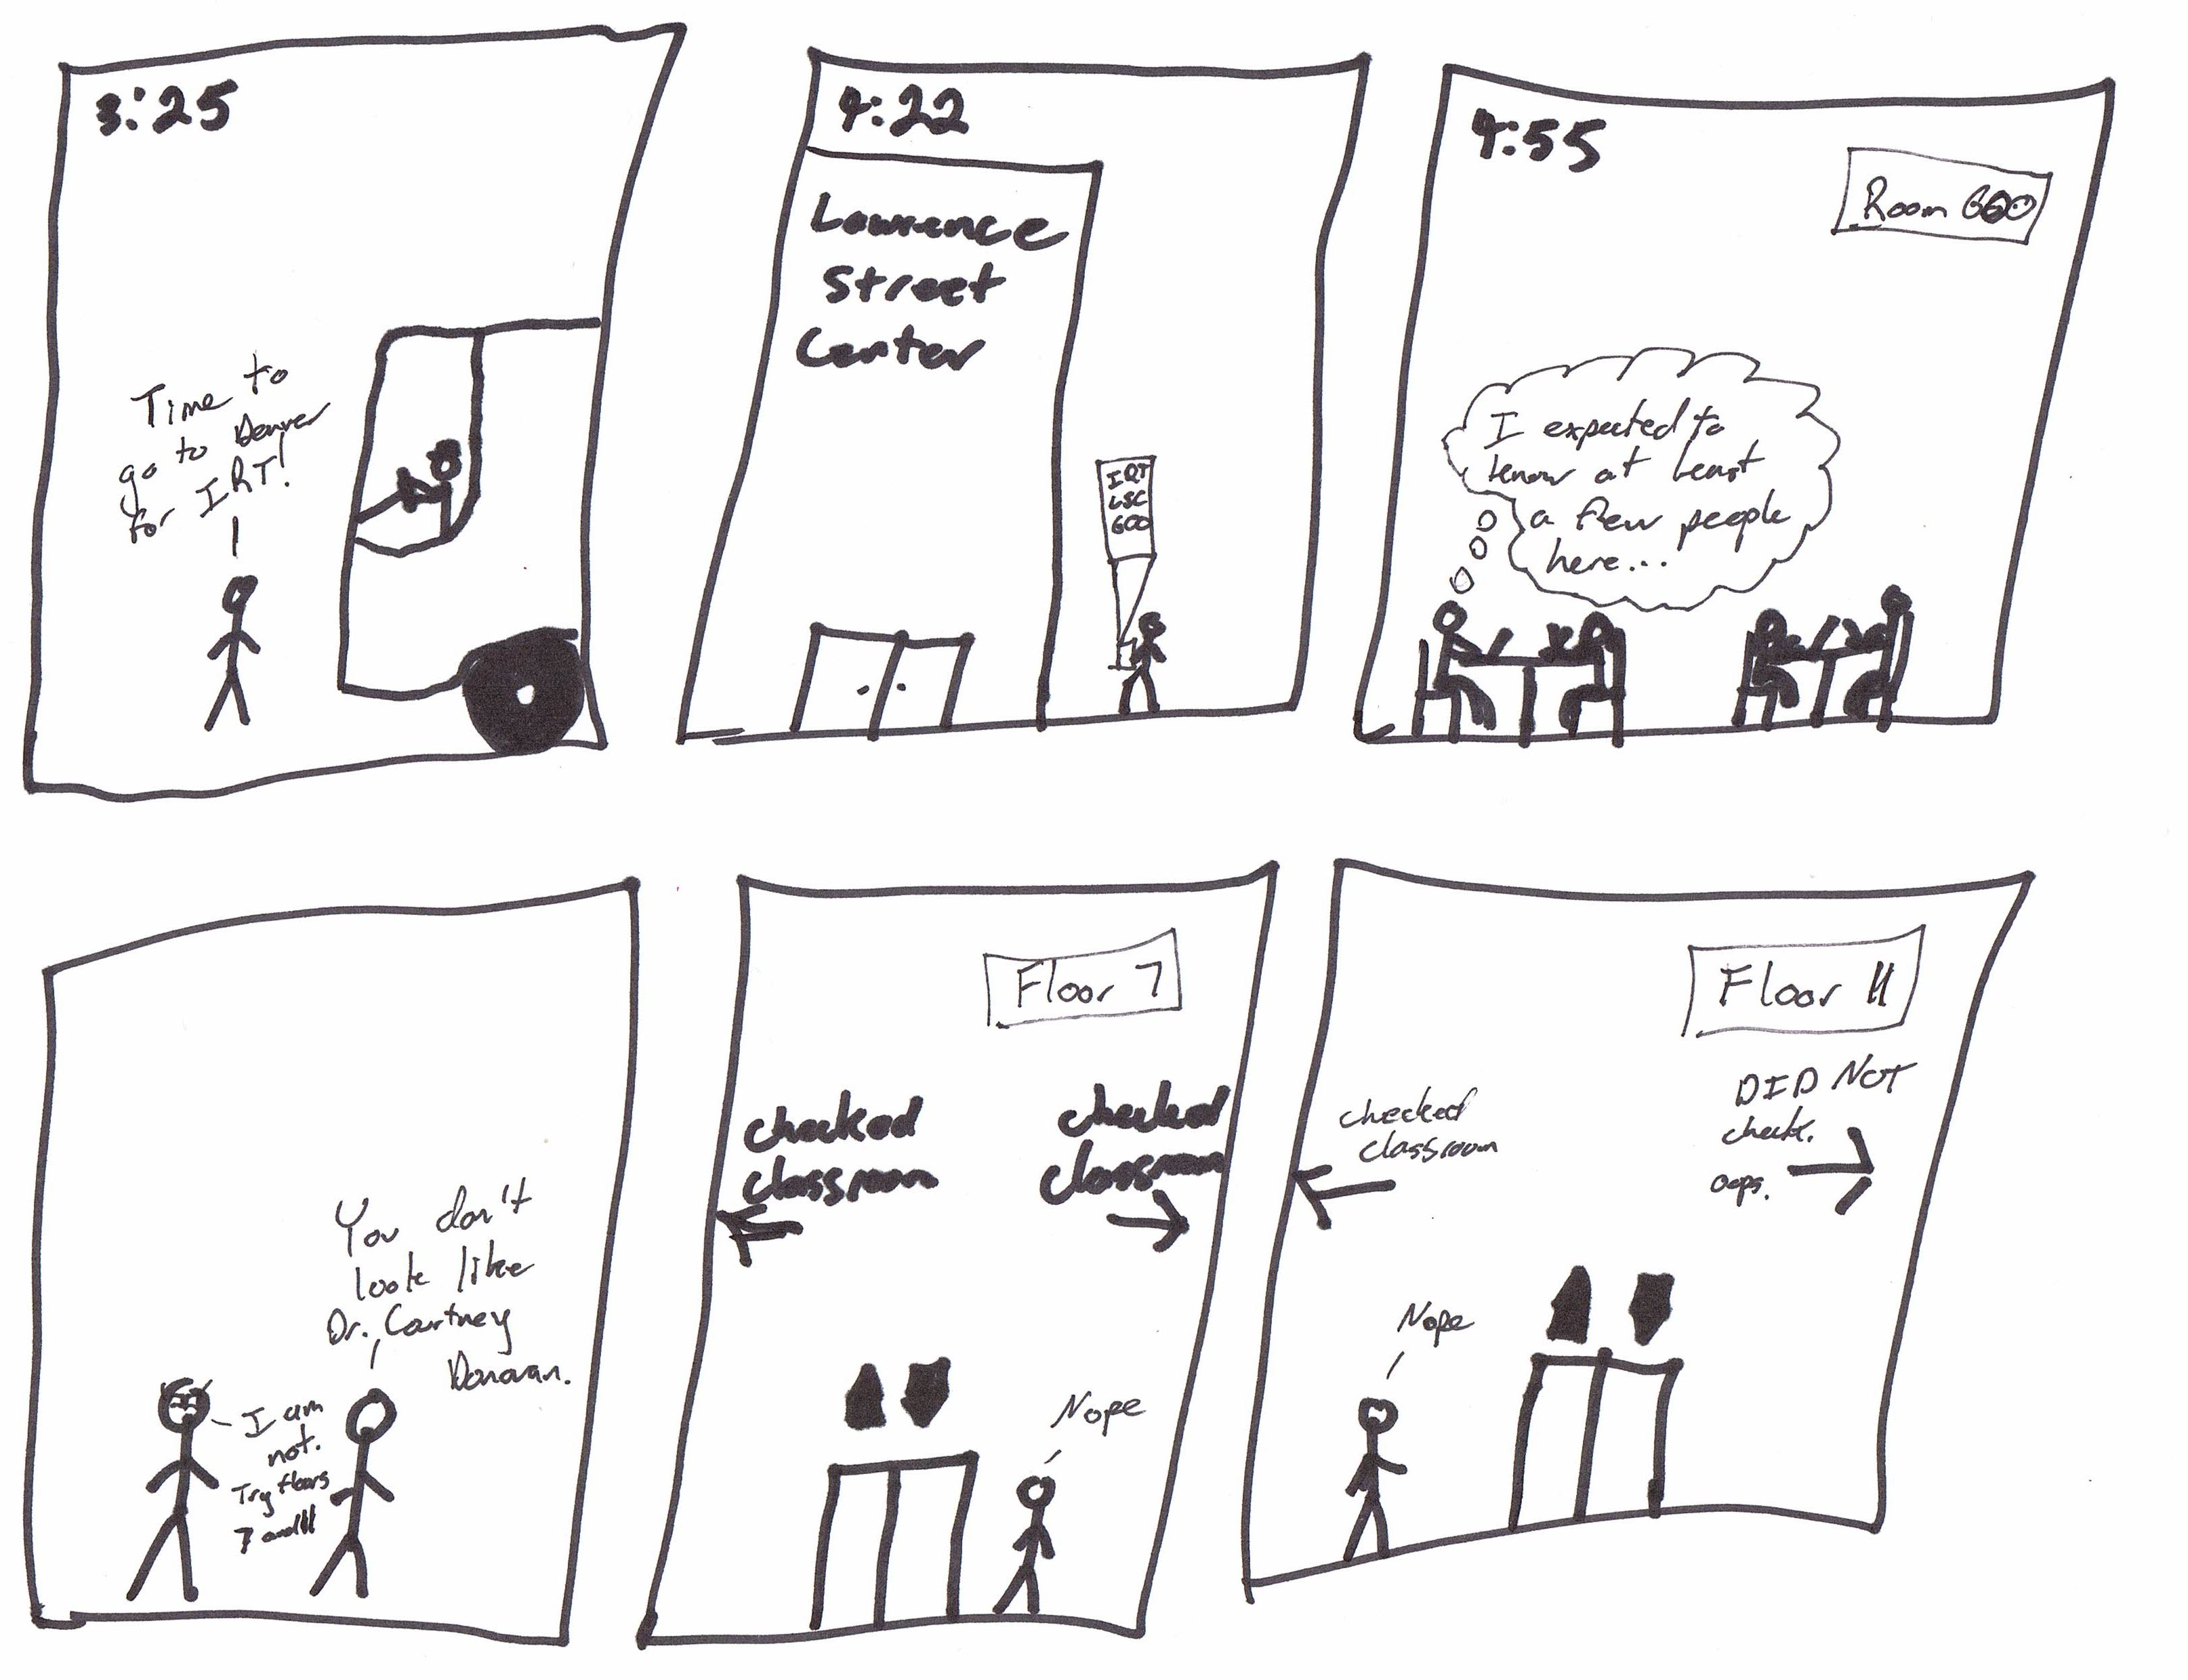 3:25
Time to
go to Denver
for IRT!
4:22
Lawrence
Street
Center
IRT
LSC
600
4:55
Room 600
I expected to
know at least
a few people
here...
You don't
look like
Dr. Courtney
Donovan.
I am
not.
Try floors
7 and 11
Floor 7
checked
classroom
checked
classroom
Nope
Floor 11
checked
classroom
DID NOT
check.
oops.
Nope